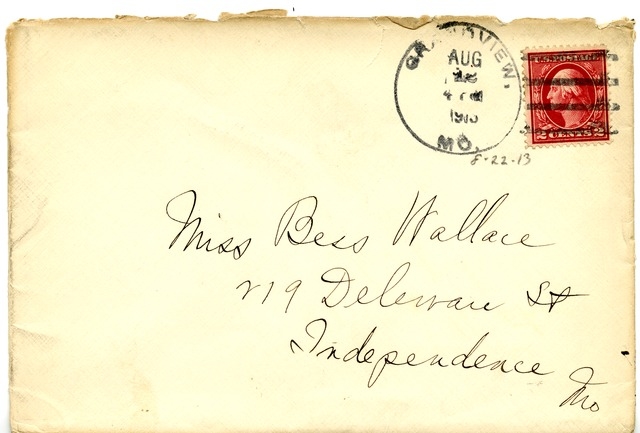 GRANDVIEW,
AUG
4 PM
1913
MO.
8-22-13
2 CENTS 2
Miss Bess Wallace
219 Deleware St
Independence
Mo